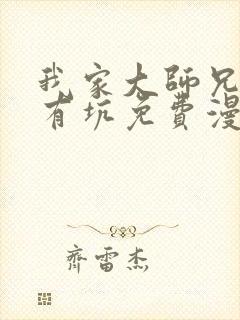 我家大師兄
有坑免費漫
齊雷杰